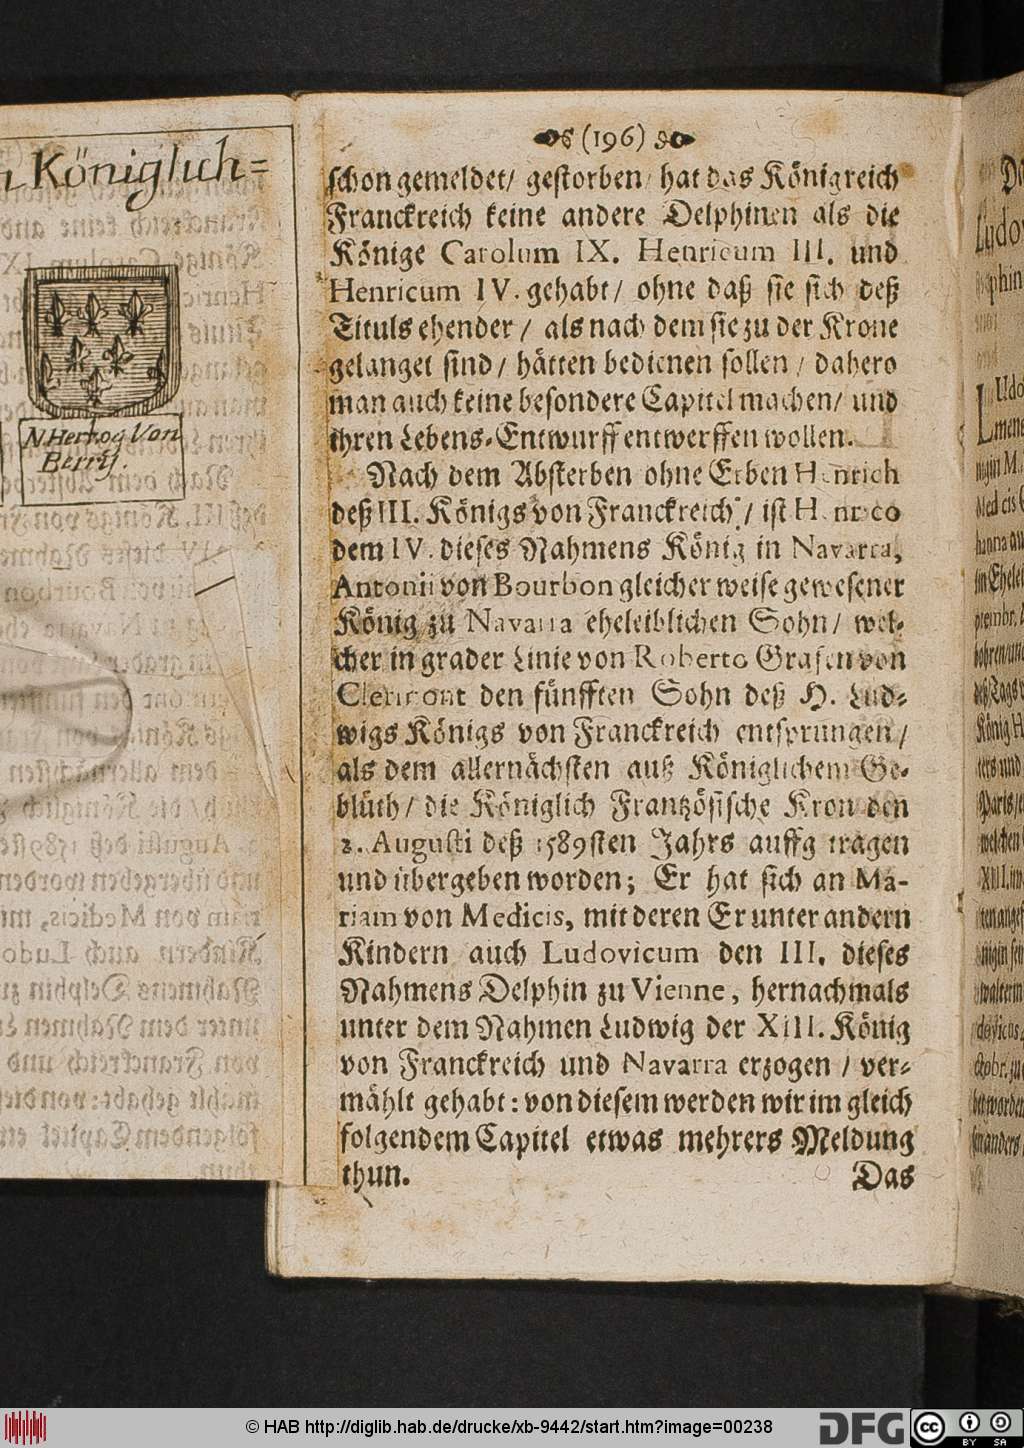 Königlich=
N. Hertzog Von
Berry.
(196)
schon gemeldet/ gestorben/ hat das Königreich
Franckreich keine andere Delphinen als die
Könige Carolum IX. Henricum III. und
Henricum IV. gehabt/ ohne daß sie sich deß
Tituls ehender/ als nach dem sie zu der Krone
gelanget sind/ hätten bedienen sollen/ dahero
man auch keine besondere Capitel machen/ und
ihren Lebens-Entwurff entwerffen wollen.
Nach dem Absterben ohne Erben Henrich
deß III. Königs von Franckreich/ ist Henrico
dem IV. dieses Nahmens König in Navarra,
Antonii von Bourbon gleicher weise gewesener
König zu Navarra eheleiblichen Sohn/ wel-
cher in grader Linie von Roberto Grafen von
Clermont den fünfften Sohn deß H. Lud-
wigs Königs von Franckreich entsprungen/
als dem allernächsten auß Königlichem Ge-
blüth/ die Königlich Frantzösische Kron den
2. Augusti deß 1589sten Jahrs auffgetragen
und übergeben worden; Er hat sich an Ma-
riam von Medicis, mit deren Er unter andern
Kindern auch Ludovicum den III. dieses
Nahmens Delphin zu Vienne, hernachmals
unter dem Nahmen Ludwig der XIII. König
von Franckreich und Navarra erzogen/ ver-
mählt gehabt: von diesem werden wir im gleich
folgendem Capitel etwas mehrers Meldung
thun.
Das
© HAB http://diglib.hab.de/drucke/xb-9442/start.htm?image=00238
DFG
cc
BY SA